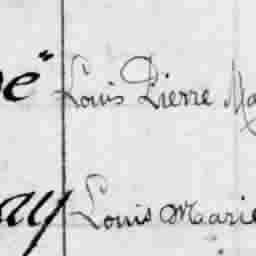 é" Louis Pierre Ma
ay Louis Marie